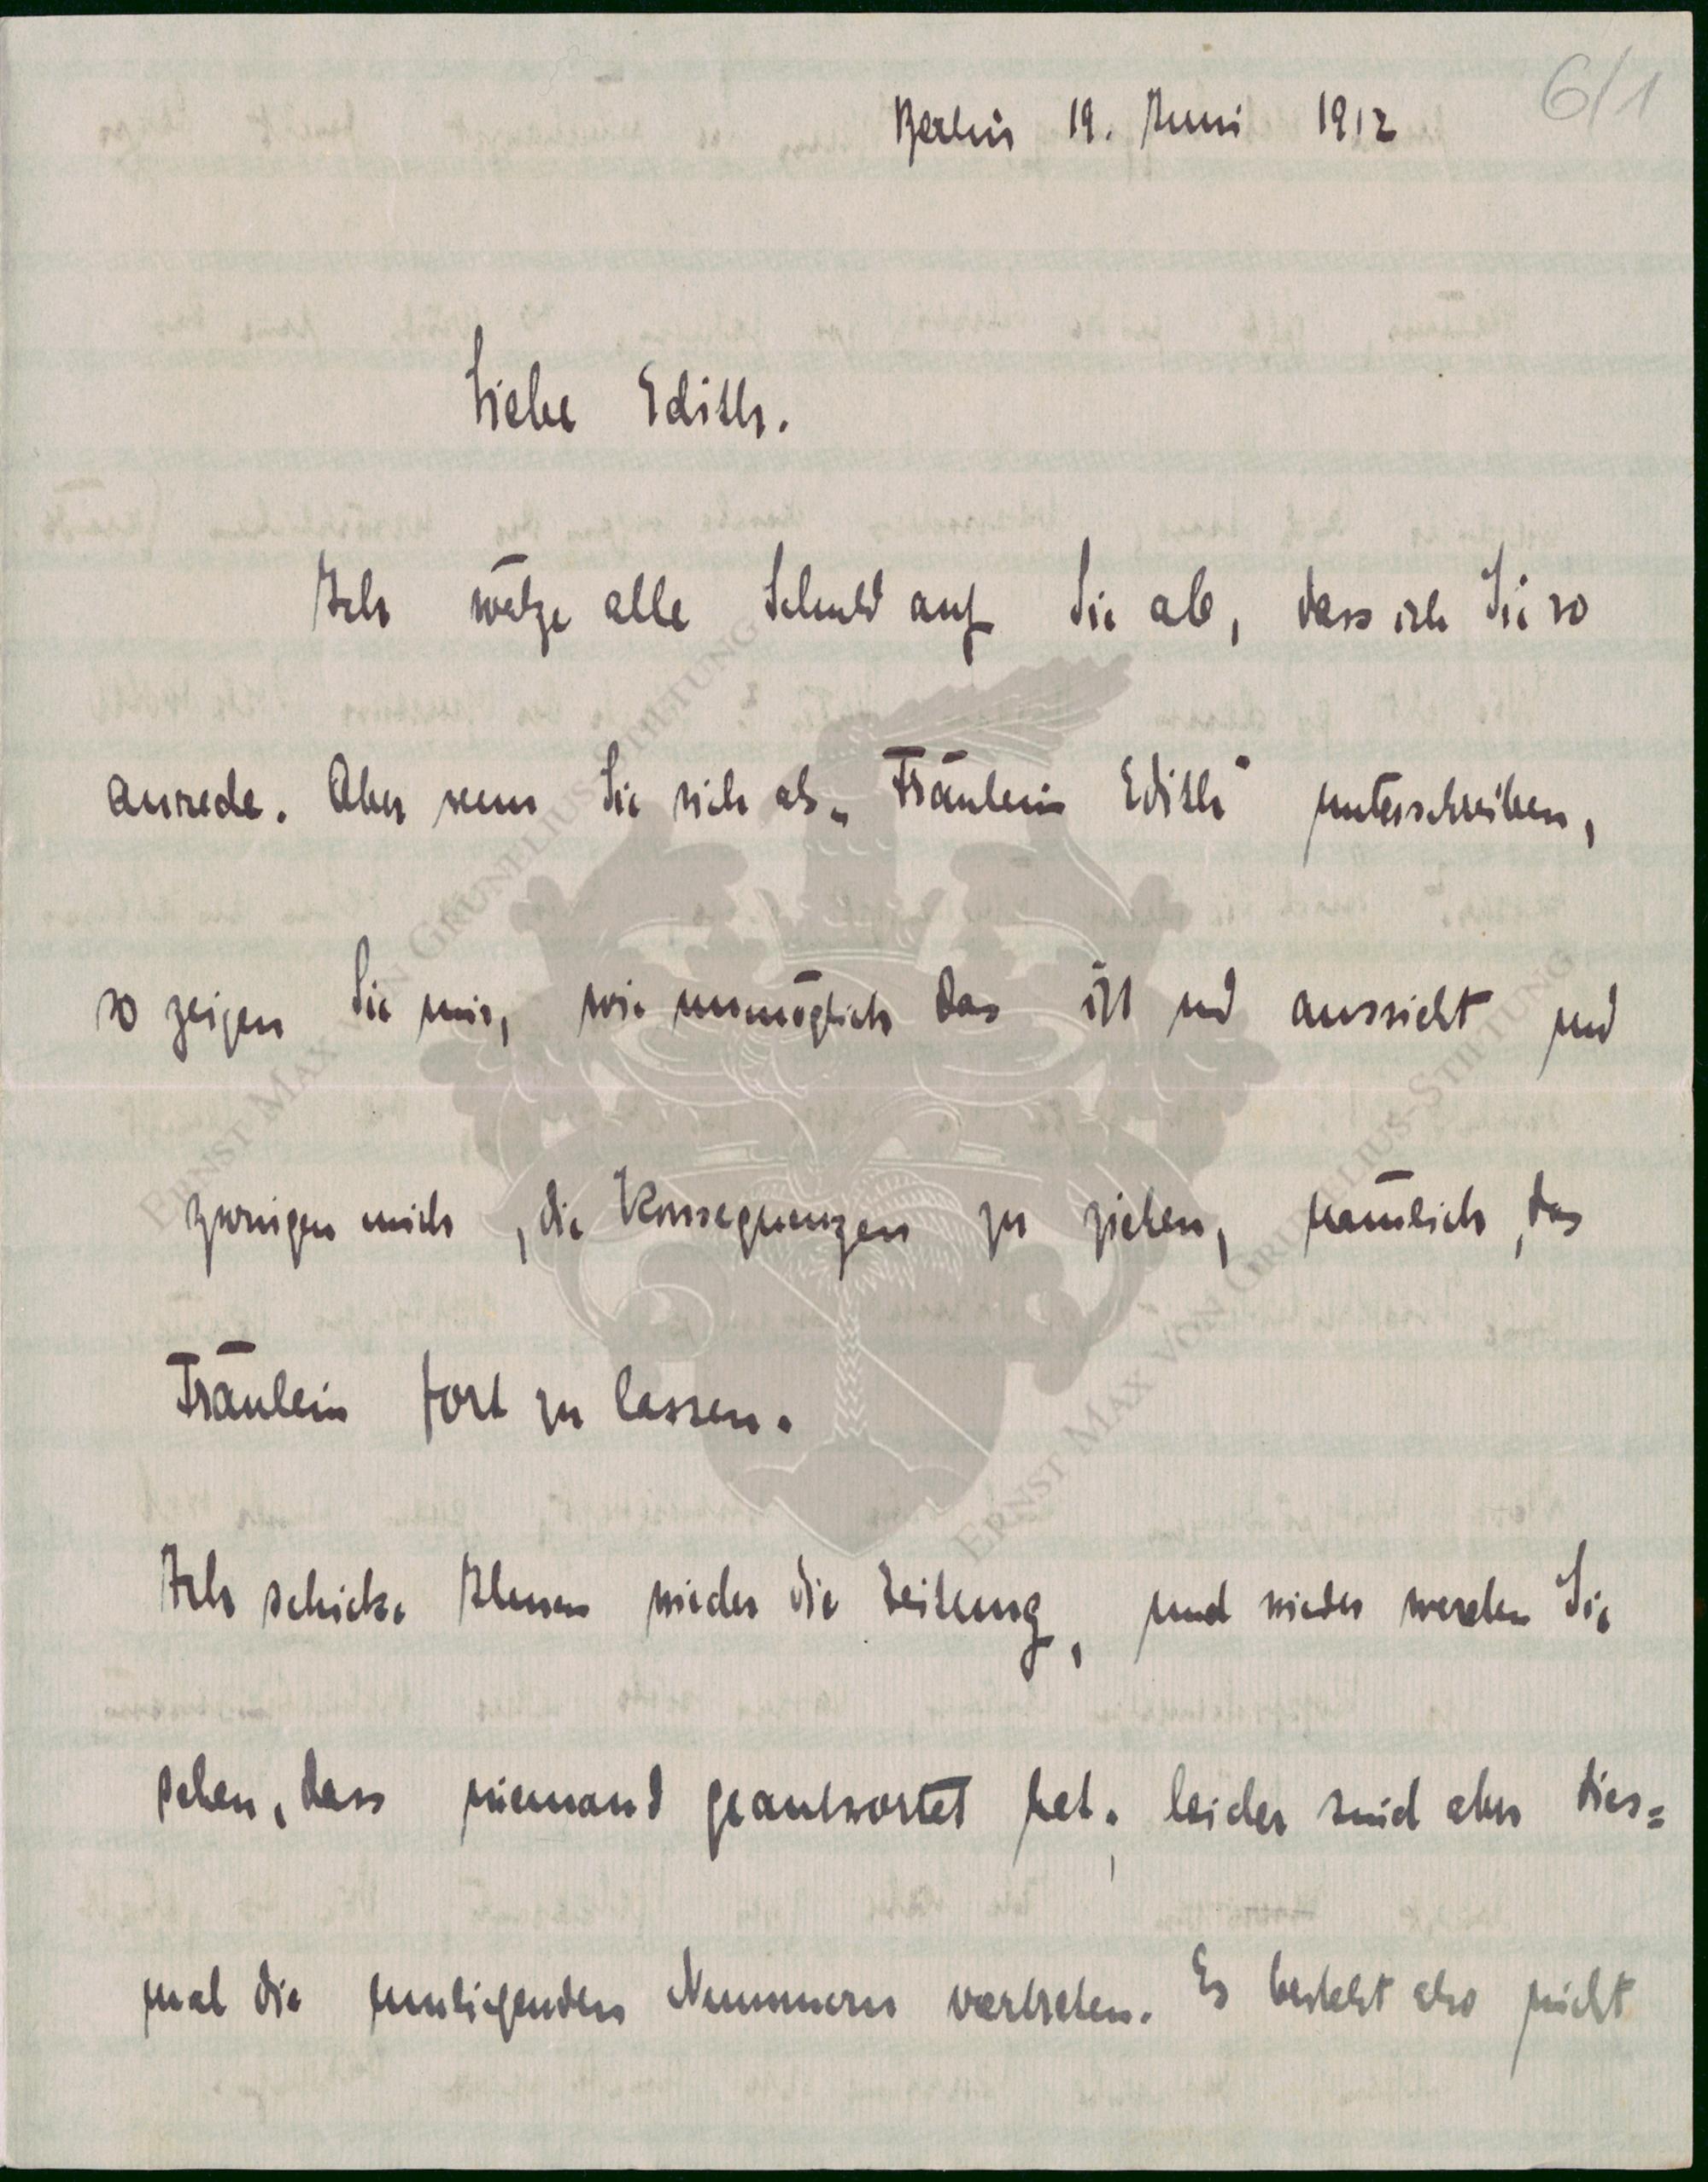 6/1
Berlin 19. Juni 1912
Liebe Edith.
Ich wälze alle Schuld auf Sie ab, dass ich Sie so
anrede. Aber wenn Sie sich als „Fräulein Edith" unterschreiben,
so zeigen Sie mir, wie unmöglich das ist und aussieht und
zwingen mich, die Konsequenzen zu ziehen, nämlich, das
Fräulein fort zu lassen.
Ich schicke Ihnen wieder die Zeitung, und wieder werden Sie
sehen, dass niemand geantwortet hat; leider sind aber dies=
mal die umliegenden Nummern vertreten. Es besteht also nicht
ERNST MAX VON GRUNELIUS-STIFTUNG
ERNST MAX VON GRUNELIUS-STIFTUNG